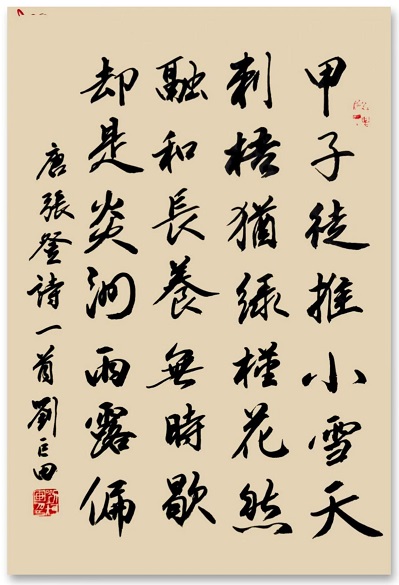 甲子徒推小雪天
刺梧猶綠槿花然
融和長養無時歇
却是炎洲雨露偏
唐張登詩一首劉巨田